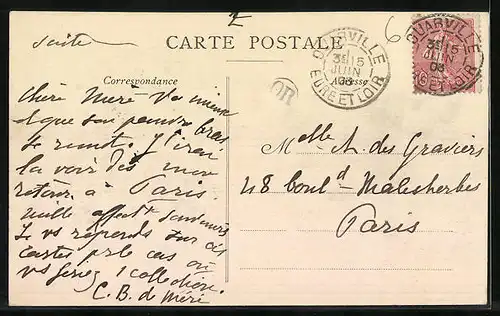 suite
CARTE POSTALE
Correspondance
Adresse
OUARVILLE
3E 15
JUIN
08
EURE ET LOIR
OUARVILLE
3E 15
JUIN
08
EURE ET LOIR
OR
6
Chère Méré
et que son pauvre bras
se remet. J'irai
la voir dès mon
retour à Paris.
mille affect
Je vs réponds sur ces
cartes pr le cas où
vs feriez 1 collection.
C. B. de Méré
Melle A. des Graviers
48 bould Malesherbes
Paris